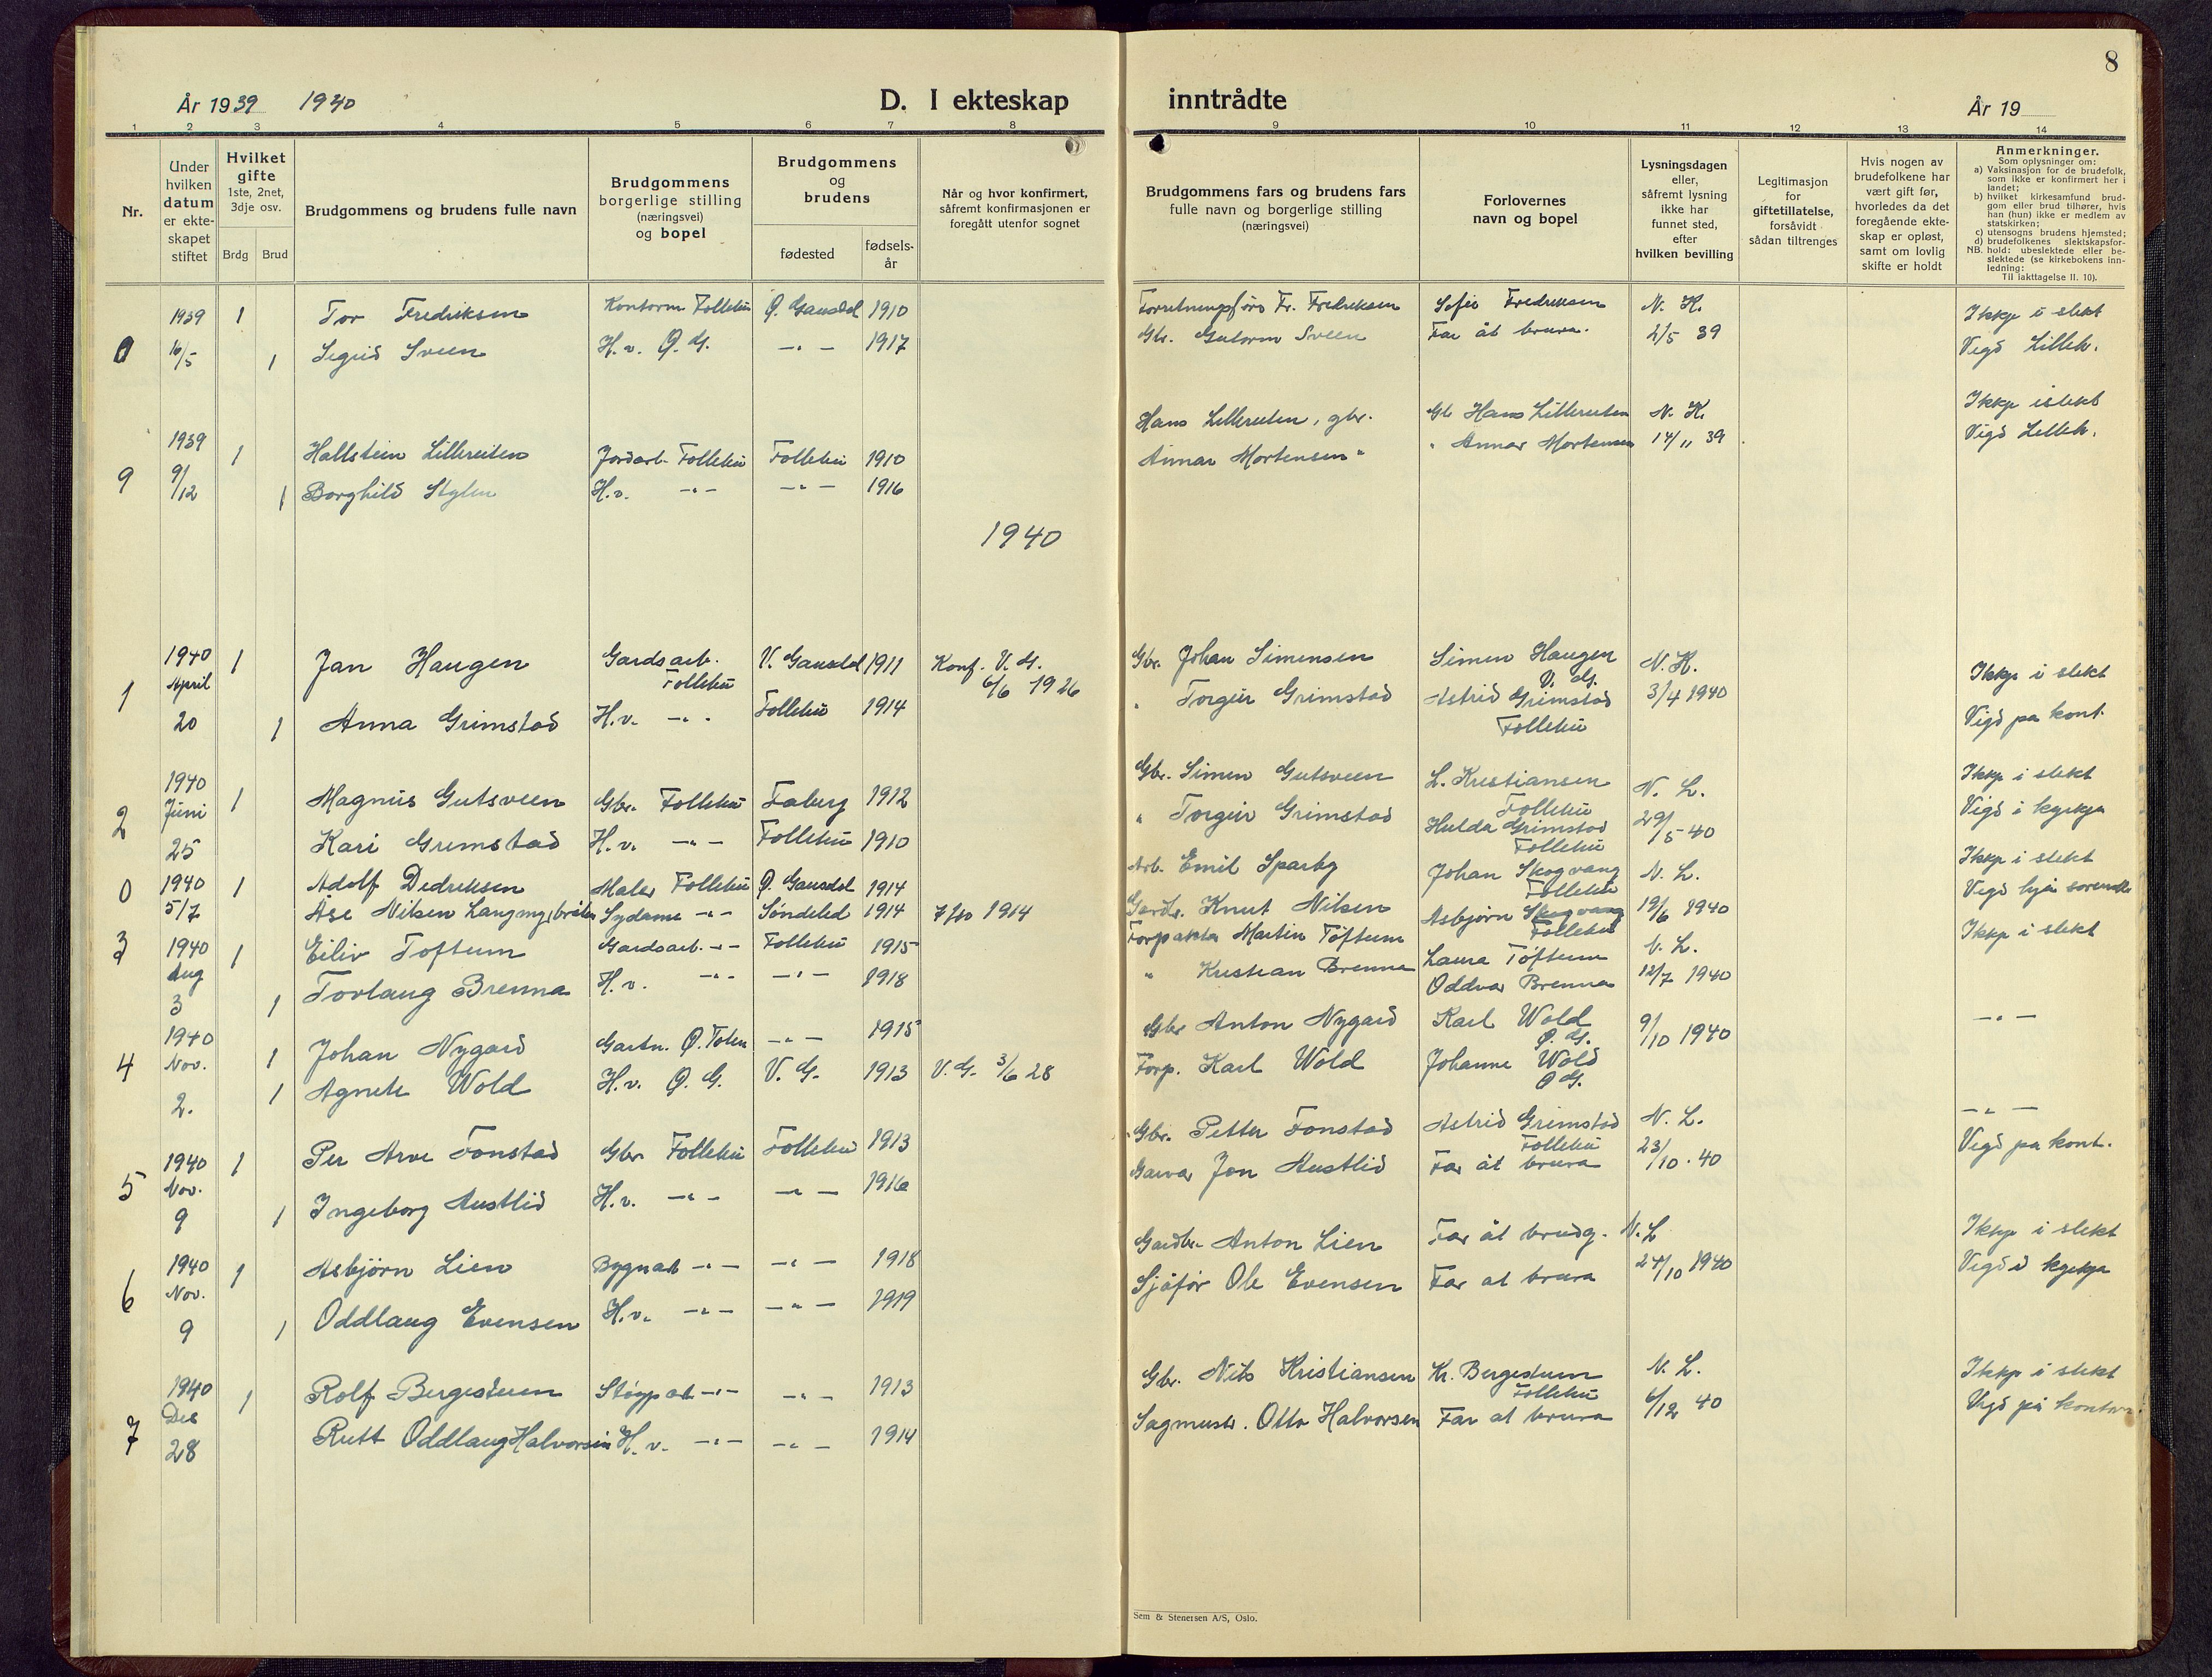 8
År 1939 1940
D. I ekteskap inntrådte
År 19
1 2 3 4 5 6 7 8 9 10 11 12 13 14
Nr.
Under hvilken datum er ekte-skapet stiftet
Hvilket gifte
1ste, 2net, 3dje osv.
Brdg Brud
Brudgommens og brudens fulle navn
Brudgommens borgerlige stilling (næringsvei) og bopel
Brudgommens og brudens
fødested
fødsels-år
Når og hvor konfirmert, såfremt konfirmasjonen er foregått utenfor sognet
Brudgommens fars og brudens fars fulle navn og borgerlige stilling (næringsvei)
Forlovernes navn og bopel
Lysningsdagen eller, såfremt lysning ikke har funnet sted, efter hvilken bevilling
Legitimasjon for giftetillatelse, forsåvidt sådan tiltrenges
Hvis nogen av brudefolkene har vært gift før, hvorledes da det foregående ekte-skap er opløst, samt om lovlig skifte er holdt
Anmerkninger.
Som oplysninger om:
a) Vaksinasjon for de brudefolk, som ikke er konfirmert her i landet;
b) hvilket kirkesamfund brud-gom eller brud tilhører, hvis han (hun) ikke er medlem av statskirken;
c) utensogns brudens hjemsted;
d) brudefolkenes slektskapsfor-
NB. hold: ubeslektede eller be-slektede (se kirkebokens inn-ledning: Til iakttagelse II. 10).
0 1939 16/5 1 Tor Fredriksen Kontorm Follebu Ø. Gausdal 1910 Forretningsførs Fr. Fredriksen Sofie Fredriksen N. K. Ikkje i slekt
1 Sigrid Sveen H.v. Ø.G. -"- 1917 Gbr. Gutorm Sveen Far åt brura. 2/5 39 Vigd Lilleh.
9 1939 9/12 1 Hallstein Lillereiten Jordarb. Follebu Follebu 1910 Hans Lillereiten, gbr. Gb Hans Lillereiten N. K. Ikkje i slekt
1 Borghild Stylen H.v. -"- -"- 1916 Annar Mortensen " " Annar Mortensen 14/11 39 Vigd Lilleh.
1940
1 1940 April 20 1 Jan Haugen Gardsarb. Follebu V. Gausdal 1911 Konf. V. G. 6/6 1926 Gbr. Johan Simensen Simen Haugen V. G. N.K. Ikkje i slekt
1 Anna Grimstad H.v. -"- Follebu 1914 " Torgeir Grimstad Astrid Grimstad Follebu 3/4 1940 Vigd på kont.
2 1940 Juni 25 1 Magnus Gutsveen Gbr. Follebu Faberg 1912 Gbr. Simen Gutsveen L. Kristiansen Follebu N. L. Ikkje i slekt
Kari Grimstad H.v. -"- Follebu 1910 " Torgeir Grimstad Hulda Grimstad Follebu 29/5 40 Vigd i kyrkja
0 1940 5/7 1 Adolf Dedriksen Maler Follebu Ø. Gausdal 1914 Arb. Emil Sparby Johan Skogvang Follebu N. L. Ikkje i slekt
Åse Nilsen Langmyrbråten Sydame -"- Søndeled 1914 7/10 1914 Gardbr. Knut Nilsen Asbjørn Skogvang Follebu 19/6 1940 Vigd hjå
3 1940 Aug 3 1 Eiliv Toftum Gardsarb. -"- Follebu 1915 Forpakta Martin Toftum Laura Toftum N. L. Ikkje i slekt
1 Torlaug Brenna H.v. -"- -"- 1918 " Kristian Brenna Oddvar Brenna 12/7 1940
4 1940 Nov. 2. 1 Johan Nygard Gartn. Ø. Toten -"- 1915 Gbr Anton Nygard Karl Wold Ø. G. 9/10 1940 -"-
1 Agnete Wold H.v. Ø. G. V. G. 1913 V. G. 3/6 28 Forp. Karl Wold Johanne Wold Ø G.
5 1940 Nov. 9 1 Per Arve Fonstad Gbr Follebu Follebu 1913 Gbr. Petter Fonstad Astrid Grimstad Follebu N. L. -"-
1 Ingeborg Austlid H.v. -"- -"- 1916 Garvar Jon Austlid Far åt brura 23/10. 40 Vigd på kont.
6 1940 Nov. 9 1 Asbjørn Lien Bygnarb -"- -"- 1918 Gardbr. Anton Lien Far åt brudg. N.L Ikkje i slekt
1 Oddlaug Evensen H.v. -"- -"- 1919 Sjåfør Ole Evensen Far at brura 24/10 1940 Vigd i kyrkja
7 1940 Des 28 1 Rolf Bergestuen Støyparb -"- -"- 1913 Gbr. Nils Kristiansen Kr. Bergestuen Follebu N. L. Ikkje i slekt
Rutt Oddlaug Halvorsen H.v. -"- -"- 1914 Sagmestr. Otto Halvorsen Far at brura 6/12 40 Vigd på kontor
Sem & Stenersen A/S, Oslo.